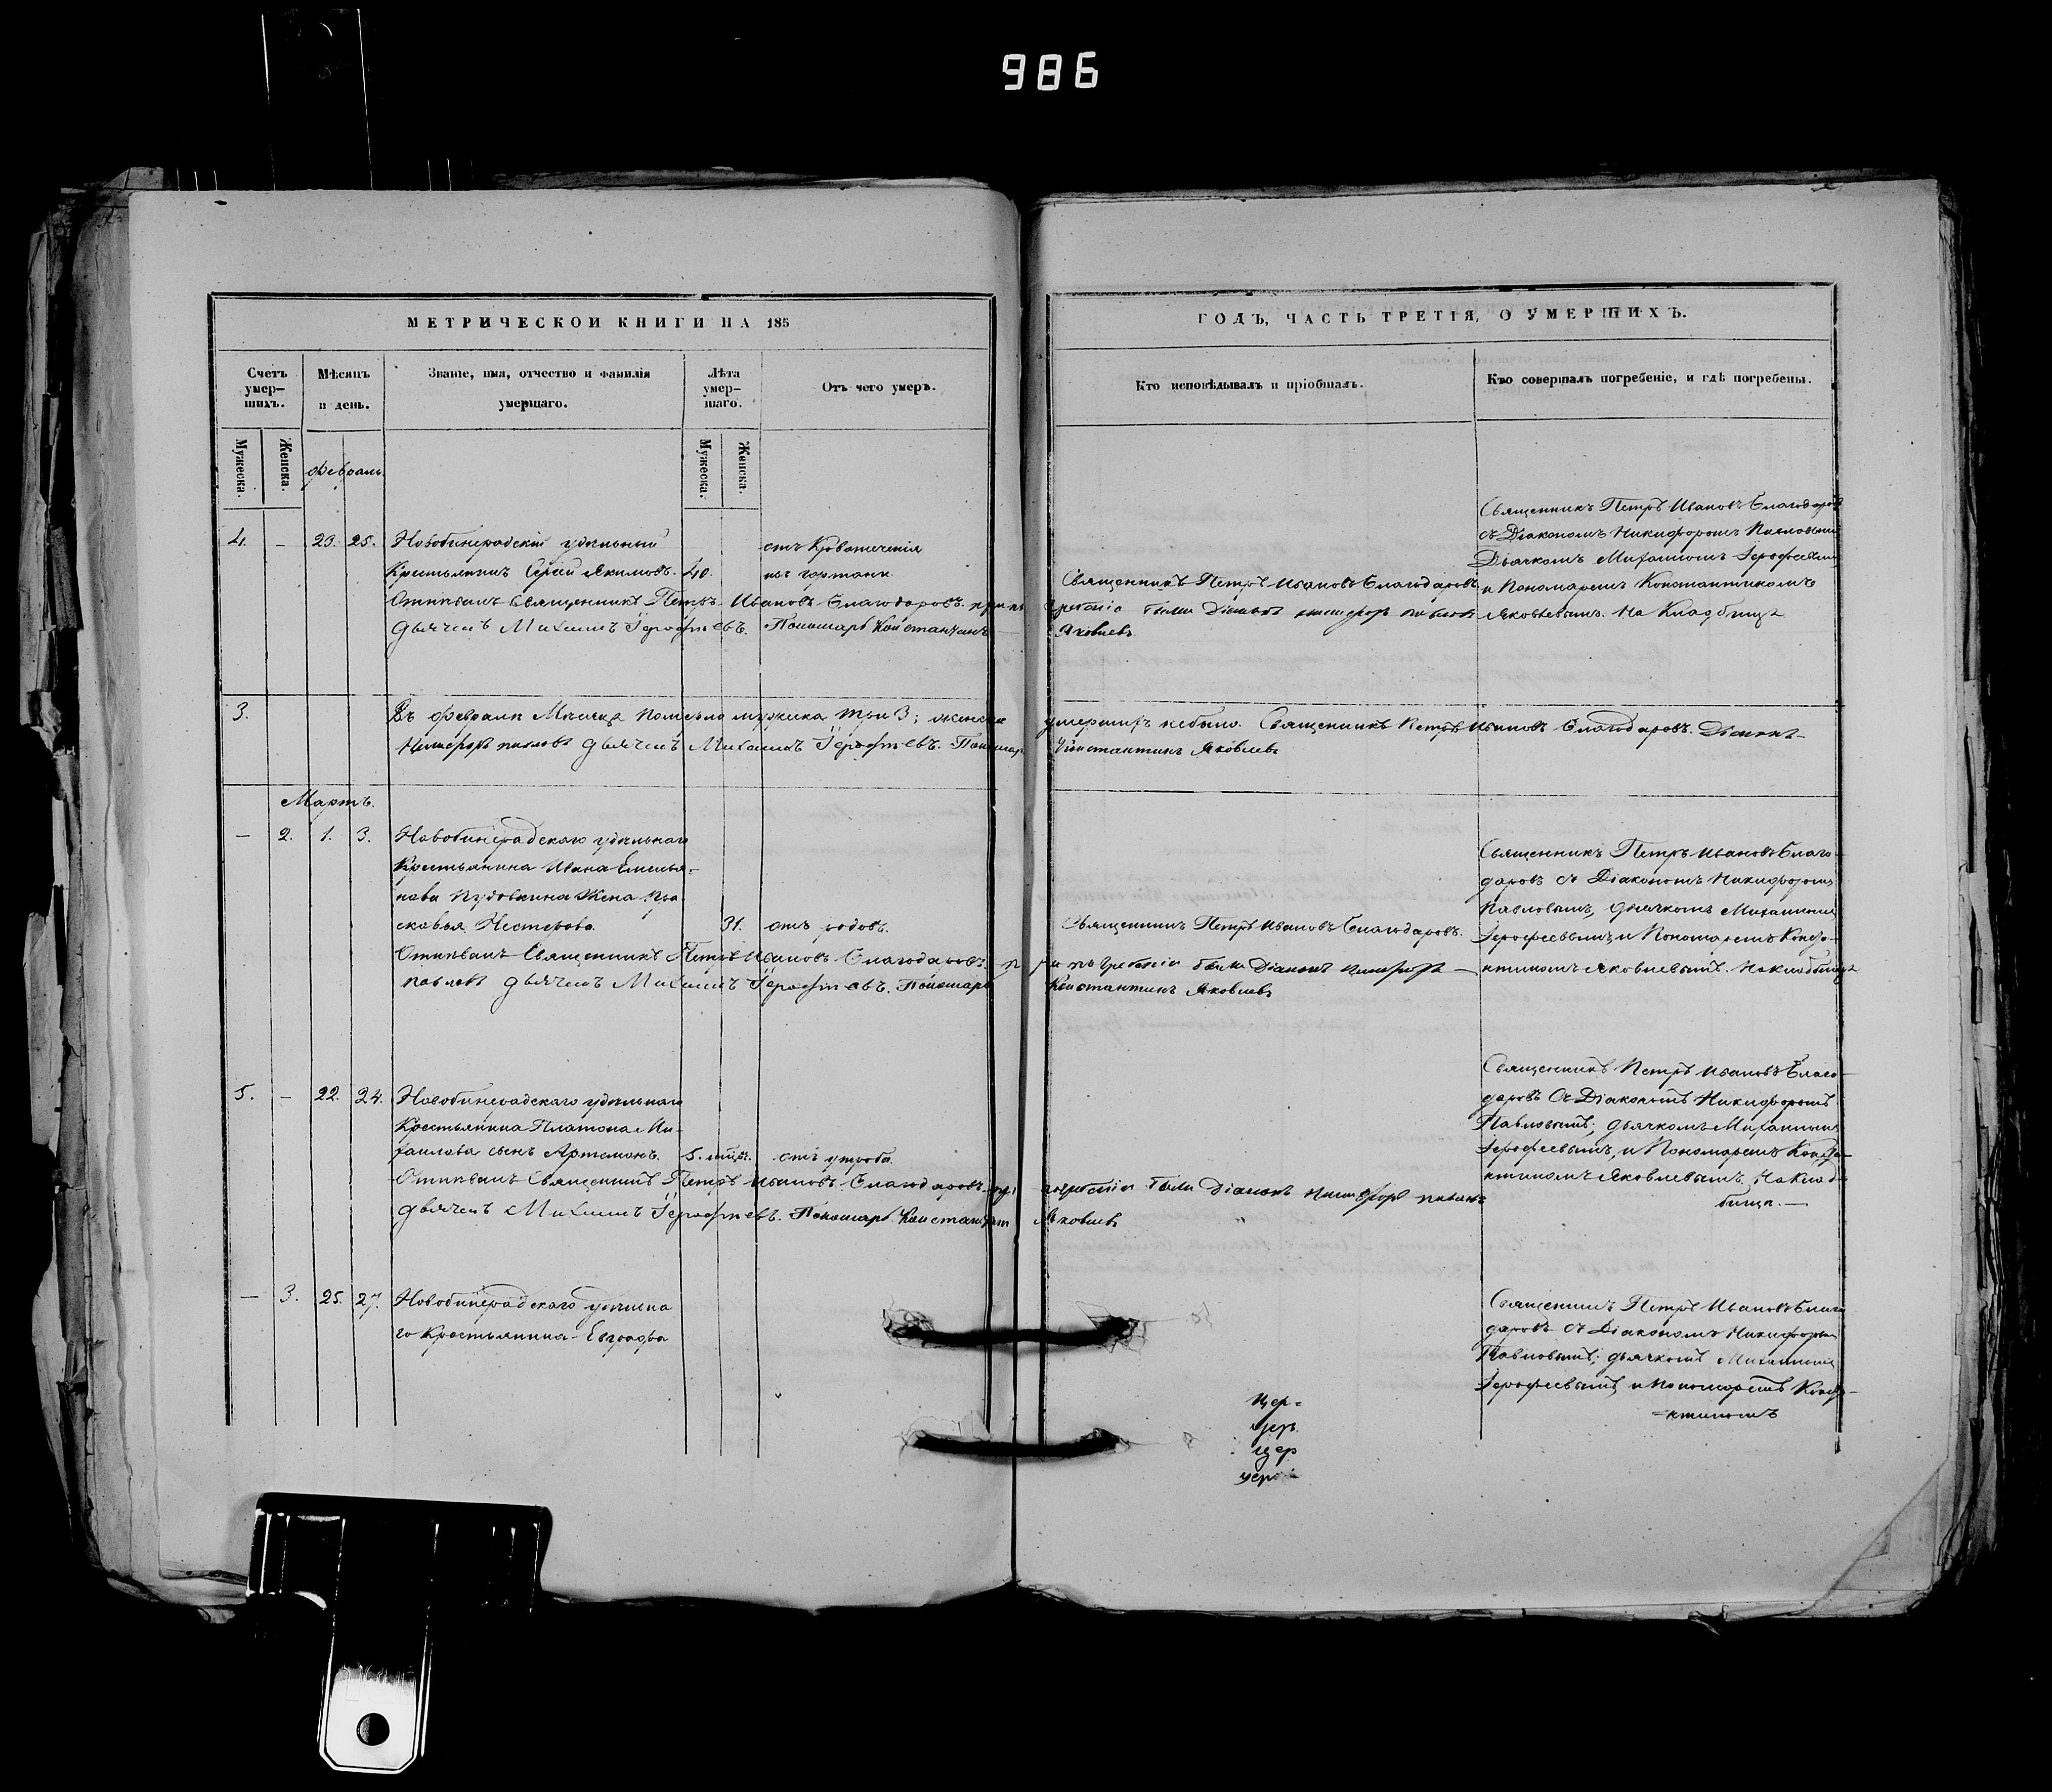 986
МЕТРИЧЕСКОЙ КНИГИ НА 185
Счетъ умер-шихъ.
Мѣсяцъ и день.
Званіе, имя, отчество и фамилія умершаго.
Лѣта умер-шаго.
Отъ чего умеръ.
Мужеска.
Женска.
Мужеска.
Женска.
Февраль.
4. – 23. 25. Новобинерадскій удѣльный
Крестьянинъ Сергій Якимовъ. 40.
отъ Кровотеченія
изъ гортани
Отпѣвалъ Священникъ Петръ Ивановъ Благодаровъ. при
дьячекъ Михаилъ Іерофѣевъ. Пономарь Константинъ
3. Въ Февралѣ Мѣсяцѣ померло мужеска три 3; женска
Никифоръ Павловъ дьячекъ Михаилъ Іерофѣевъ. Пономарь
Мартъ.
– 2. 1. 3. Новобинерадскаго удѣльнаго
Крестьянина Ивана Емелья-
нова Пудовкина Жена Пра-
сковья Нестерова. 31. отъ родовъ.
Отпѣвалъ Священникъ Петръ Ивановъ Благодаровъ
Павловъ дьячекъ Михаилъ Іерофѣевъ. Пономарь
5. – 22. 24. Новобинерадскаго удѣльнаго
Крестьянина Платона Ми-
хаилова сынъ Артемонъ. 5. мѣсц. отъ утробы.
Отпѣвалъ Священникъ Петръ Ивановъ Благодаровъ при
дьячекъ Михаилъ Іерофѣевъ. Пономарь Константинъ
– 3. 25. 27. Новобинерадскаго удѣльна
го Крестьянина Евграфа
ГОДЪ, ЧАСТЬ ТРЕТІЯ, О УМЕРШИХЪ.
Кто исповѣдывалъ и пріобщалъ.
Кто совершалъ погребеніе, и гдѣ погребены.
Священникъ Петръ Ивановъ Благодаровъ
съ Діакономъ Никифоромъ Павловымъ
Дьячкомъ Михаиломъ Іерофеевымъ
и Пономаремъ Константиномъ
Яковлевымъ. На Кладбищѣ
Священникъ Петръ Ивановъ Благодаровъ
были Діаконъ Никифоръ Павловъ
Яковлевъ
умершихъ небыло. Священникъ Петръ Ивановъ Благодаровъ. Діаконъ
Константинъ Яковлевъ
Священникъ Петръ Ивановъ Благо-
даровъ съ Діакономъ Никифоромъ
Павловымъ, дьячкомъ Михаиломъ
Іерофеевымъ, и Пономаремъ Конста-
нтиномъ Яковлевымъ. На кладбищѣ
Священникъ Петръ Ивановъ Благодаровъ.
при погребеніи были Діаконъ Никифоръ –
Константинъ Яковлевъ
Священникъ Петръ Ивановъ Благо-
даровъ Съ Діакономъ Никифоромъ
Павловымъ; дьячкомъ Михаиломъ
Іерофеевымъ, и Пономаремъ Конста-
нтиномъ Яковлевымъ. На Клад-
бищѣ. –
погребеніи были Діаконъ Никифоръ Павловъ
Яковлевъ
Священникъ Петръ Ивановъ Благо
даровъ съ Діакономъ Никифоромъ
Павловымъ; дьячкомъ Михаиломъ
Іерофеевымъ и Пономаремъ Конста-
-нтиномъ
Цер=
цер
цер
цер